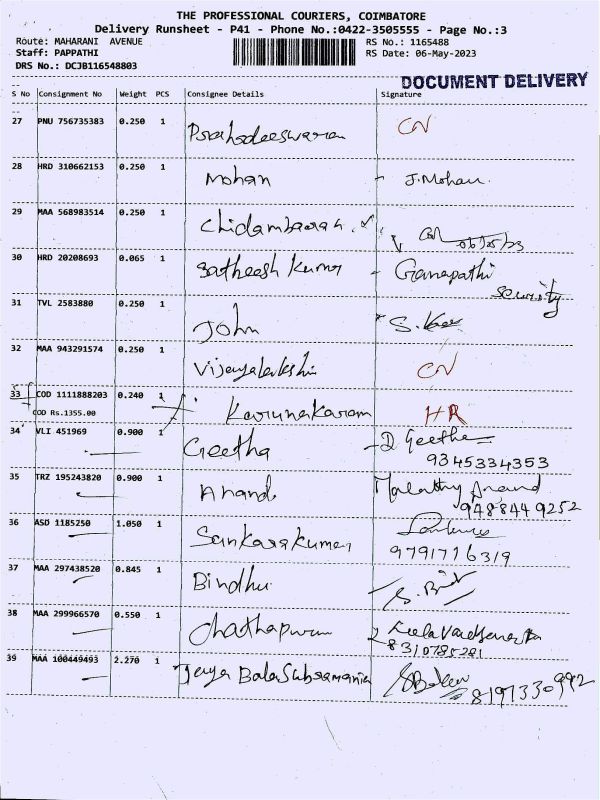 THE PROFESSIONAL COURIERS, COIMBATORE
Delivery Runsheet - P41 - Phone No.:0422-3505555 - Page No.:3
Route: MAHARANI AVENUE RS No.: 1165488
Staff: PAPPATHI RS Date: 06-May-2023
DRS No.: DCJB116548803
DOCUMENT DELIVERY
S No Consignment No Weight PCS Consignee Details Signature
27 PNU 756735383 0.250 1 CN
28 HRD 310662153 0.250 1 Mohan - J.Mohan
29 MAA 568983514 0.250 1 Chidambaram
06/05/23
30 HRD 20208693 0.065 1 Satheesh Kumar - Ganapathi
security
31 TVL 2583880 0.250 1 John
32 MAA 943291574 0.250 1 Vijayalakshi CN
33 COD 1111888203 0.240 1 Karunakaram HR
COD Rs.1355.00
34 VLI 451969 0.900 1 Geetha - D Geetha
9345334353
35 TRZ 195243820 0.900 1 Anand Malathy Anand
9488449252
36 ASD 1185250 1.050 1 Sankarakumar
9791716319
37 MAA 297438520 0.845 1 Bindhu
38 MAA 299966570 0.550 1
39 MAA 100449493 2.270 1 Jeya BalaSubramaniam